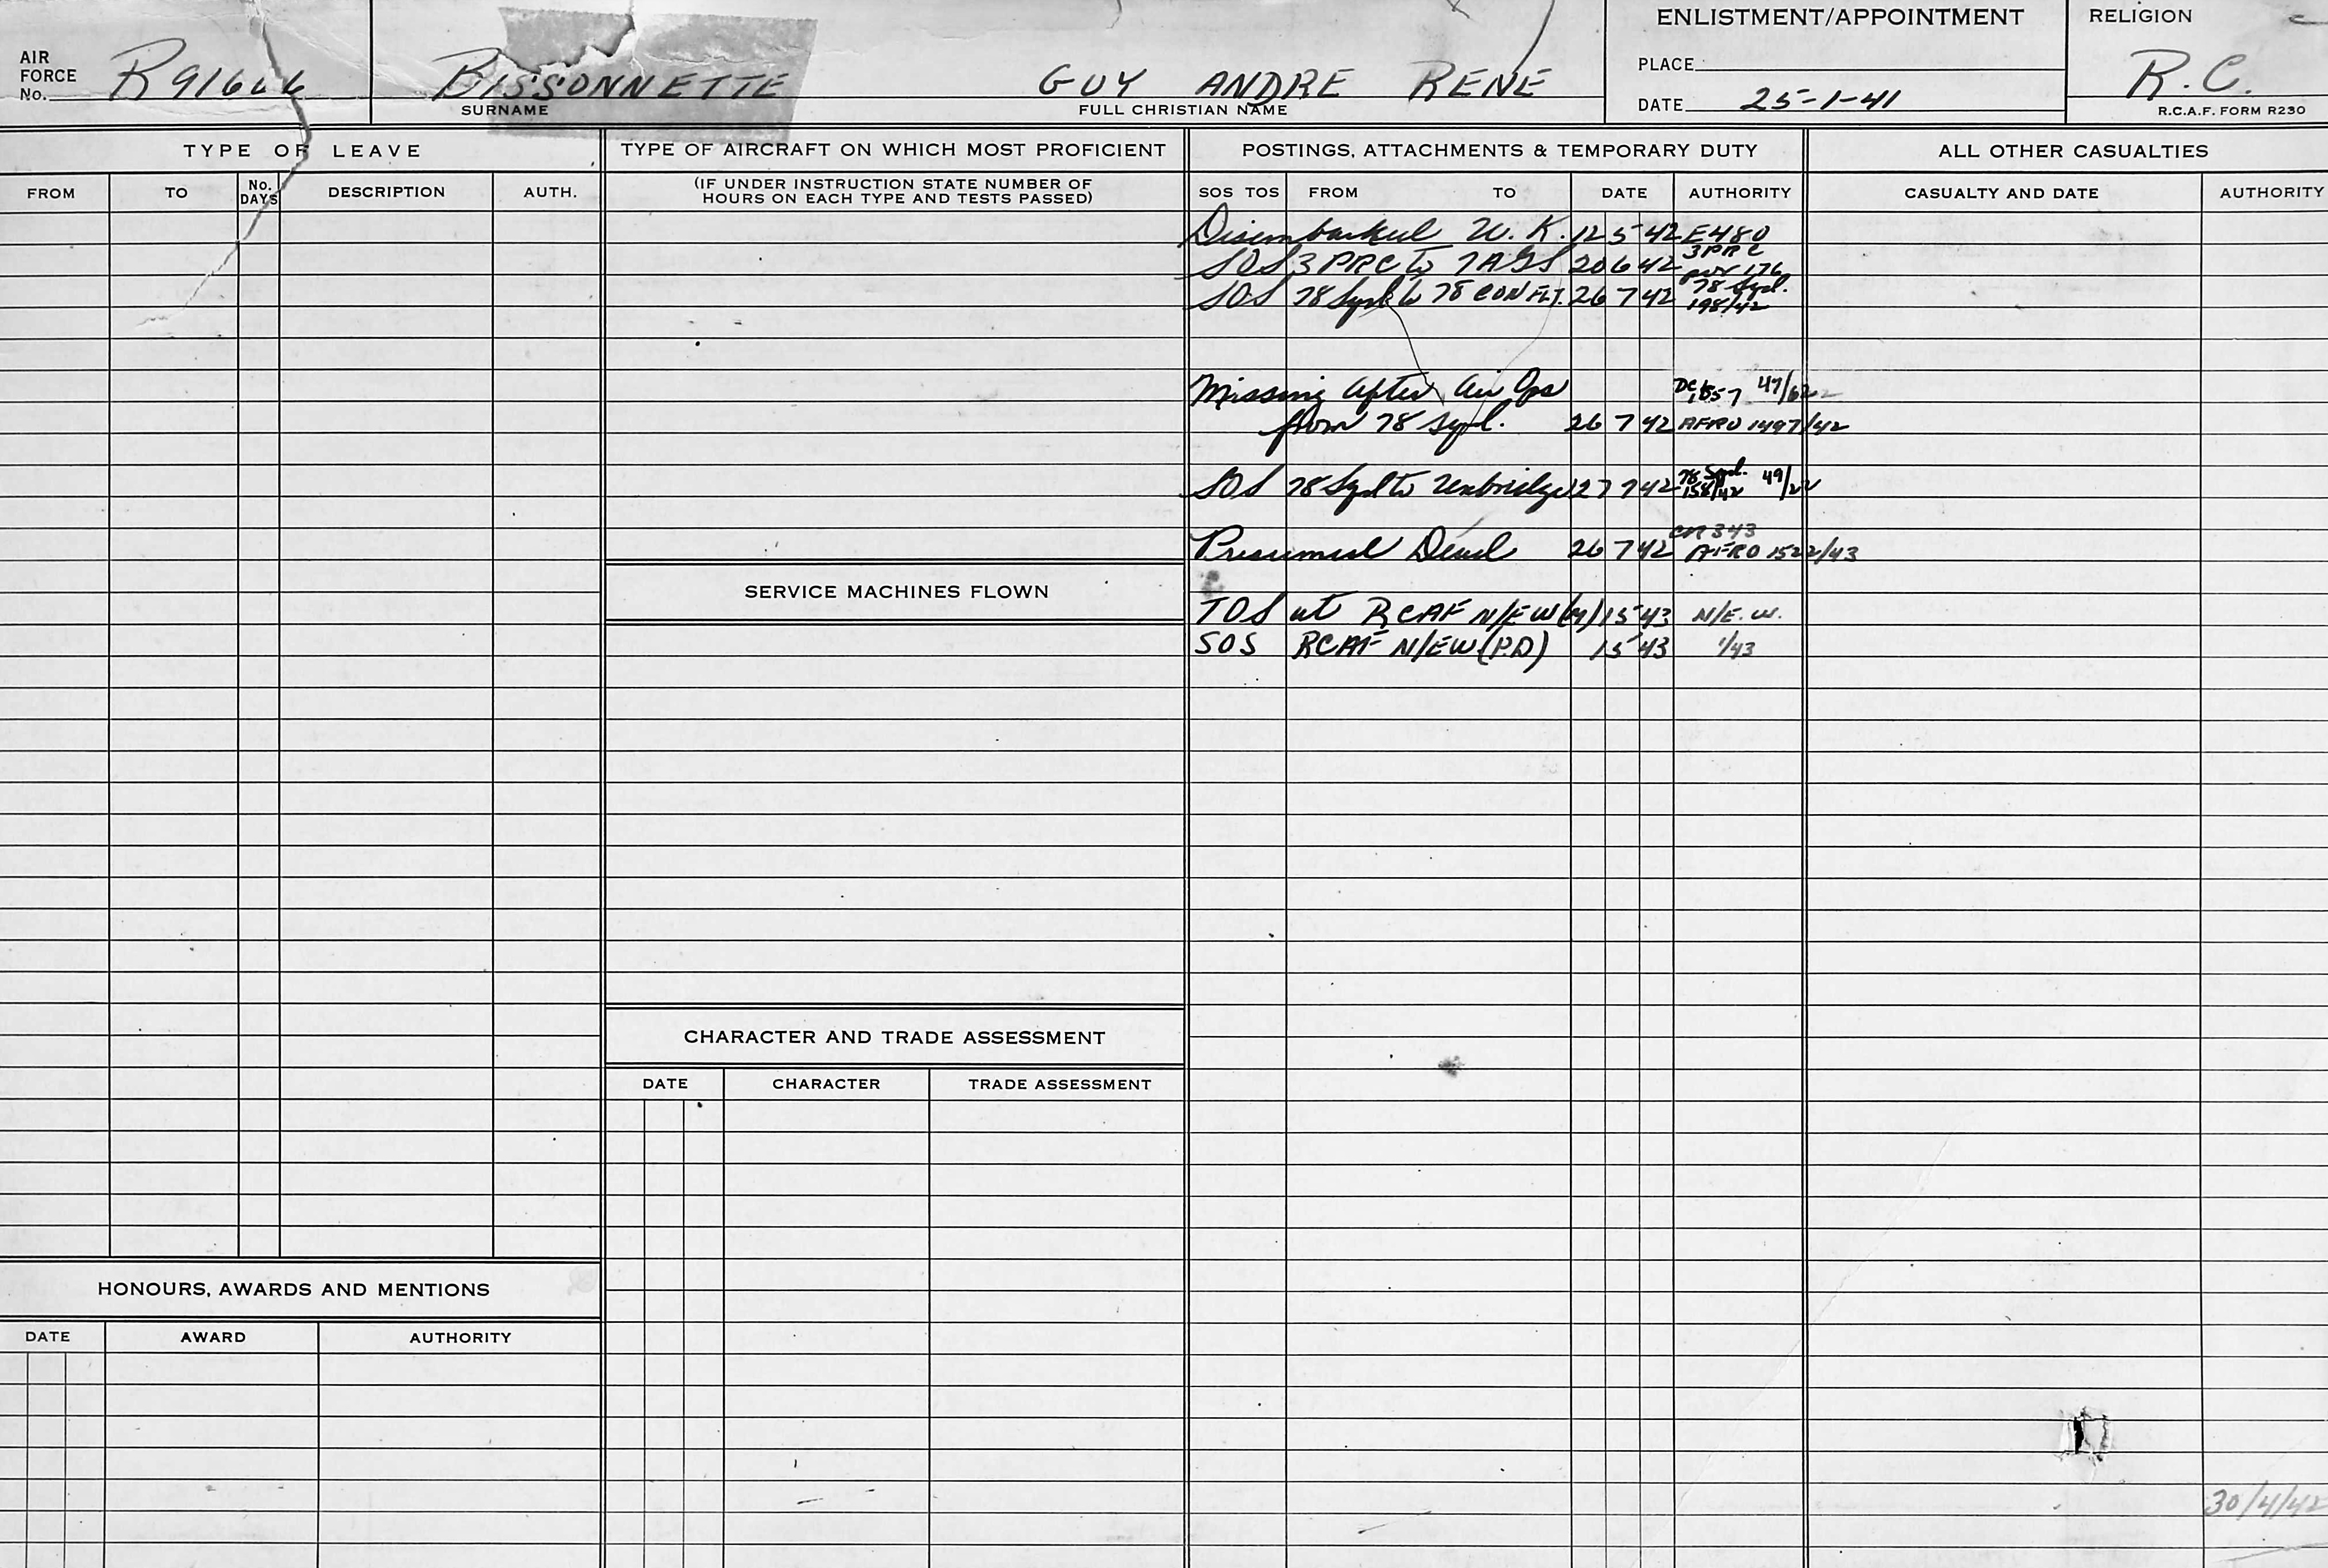 AIR FORCE No. R91646
BISSONNETTE
SURNAME
GUY ANDRE RENE
FULL CHRISTIAN NAME
ENLISTMENT/APPOINTMENT
PLACE
DATE 25-1-41
RELIGION
R.C.
R.C.A.F. FORM R230
TYPE OF LEAVE
FROM TO No. DAYS DESCRIPTION AUTH.
TYPE OF AIRCRAFT ON WHICH MOST PROFICIENT
(IF UNDER INSTRUCTION STATE NUMBER OF
HOURS ON EACH TYPE AND TESTS PASSED)
POSTINGS, ATTACHMENTS & TEMPORARY DUTY
SOS TOS FROM TO DATE AUTHORITY
ALL OTHER CASUALTIES
CASUALTY AND DATE AUTHORITY
Disembarked U.K. 12 5 42 E480
SOS 3 PRC to 7AGS 20 6 42 3PRC 176
SOS 78 Sqd to 78 CON FLT. 26 7 42 78 Sqd. 198/42
Missing after Air Ops 47/
from 78 Sqd. 26 7 42 AFRO 1497/42
SOS 78 Sqd to Uxbridge 27 7 42 78 Sqd. 158/42 49/22
Presumed Dead 26 7 42 AFRO 1522/43
TOS at RCAF N/EW(M) 1 5 43 N/E.W.
SOS RCAF N/EW(P.D) 1 5 43 1/43
SERVICE MACHINES FLOWN
CHARACTER AND TRADE ASSESSMENT
DATE CHARACTER TRADE ASSESSMENT
HONOURS, AWARDS AND MENTIONS
DATE AWARD AUTHORITY
30/4/42